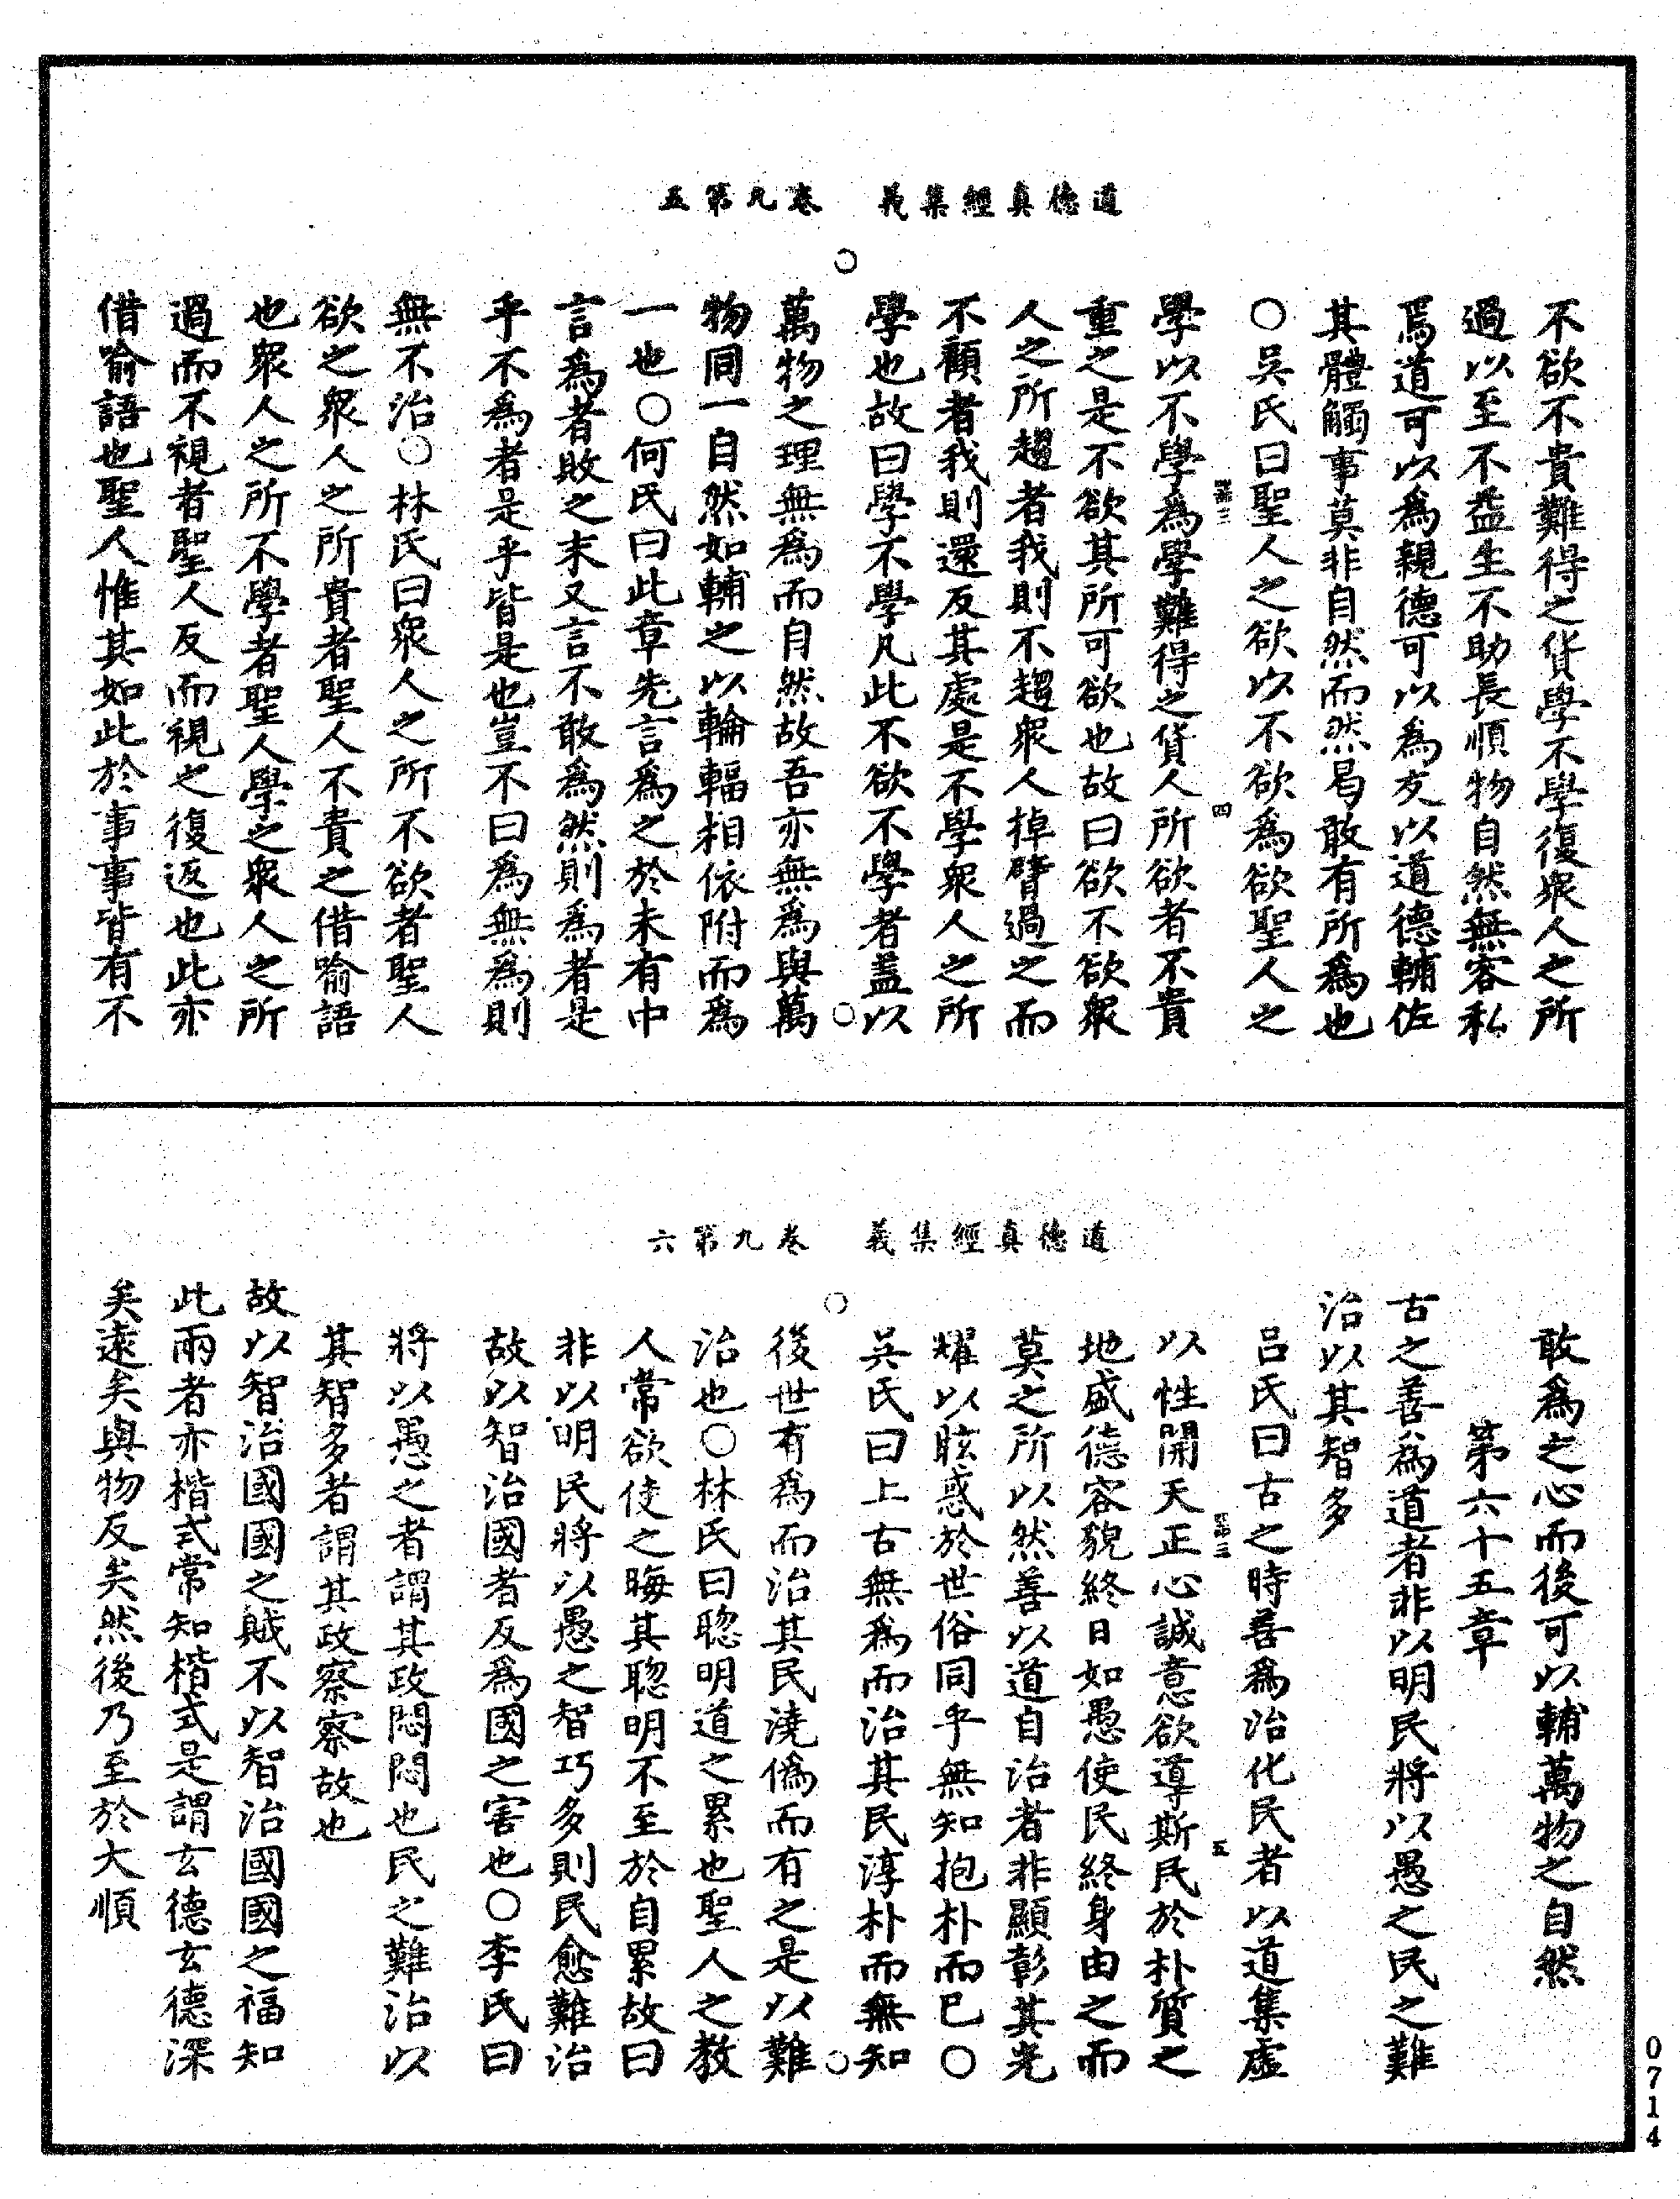 道德真經集義　卷九第五
不欲不貴難得之貨學不學復衆人之所
過以至不益生不助長順物自然無容私
焉道可以為親德可以為友以道德輔佐
其體觸事莫非自然而然曷敢有所為也
○吳氏曰聖人之欲以不欲為欲聖人之
學以不學為學難得之貨人所欲者不貴
重之是不欲其所可欲也故曰欲不欲衆
人之所趨者我則不趨衆人掉臂過之而
不顧者我則還反其處是不學衆人之所
學也故曰學不學凡此不欲不學者蓋以
萬物之理無為而自然故吾亦無為與萬
物同一自然如輔之以輪輻相依附而為
一也○何氏曰此章先言為之於未有中
言為者敗之末又言不敢為然則為者是
乎不為者是乎皆是也豈不曰為無為則
無不治○林氏曰衆人之所不欲者聖人
欲之衆人之所貴者聖人不貴之借喻語
也衆人之所不學者聖人學之衆人之所
過而不視者聖人反而視之復返也此亦
借喻語也聖人惟其如此於事事皆有不
四
道德真經集義　卷九第六
敢為之心而後可以輔萬物之自然
第六十五章
古之善為道者非以明民將以愚之民之難
治以其智多
呂氏曰古之時善為治化民者以道集虛
以性開天正心誠意欲導斯民於朴質之
地盛德容貌終日如愚使民終身由之而
莫之所以然善以道自治者非顯彰其光
耀以眩惑於世俗同乎無知抱朴而已○
吳氏曰上古無為而治其民淳朴而無知
後世有為而治其民澆偽而有之是以難
治也○林氏曰聰明道之累也聖人之教
人常欲使之晦其聰明不至於自累故曰
非以明民將以愚之智巧多則民愈難治
故以智治國者反為國之害也○李氏曰
將以愚之者謂其政悶悶也民之難治以
其智多者謂其政察察故也
故以智治國國之賊不以智治國國之福知
此兩者亦楷式常知楷式是謂玄德玄德深
矣遠矣與物反矣然後乃至於大順
五
0714